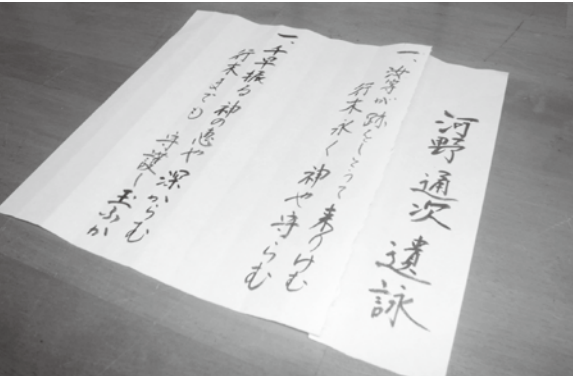 河野通次遺詠
一、汝等が跡をしとうて来りけむ
行末永く神や守らむ
一、千早振る神の恵や深からむ
行末までも守護し玉ふか